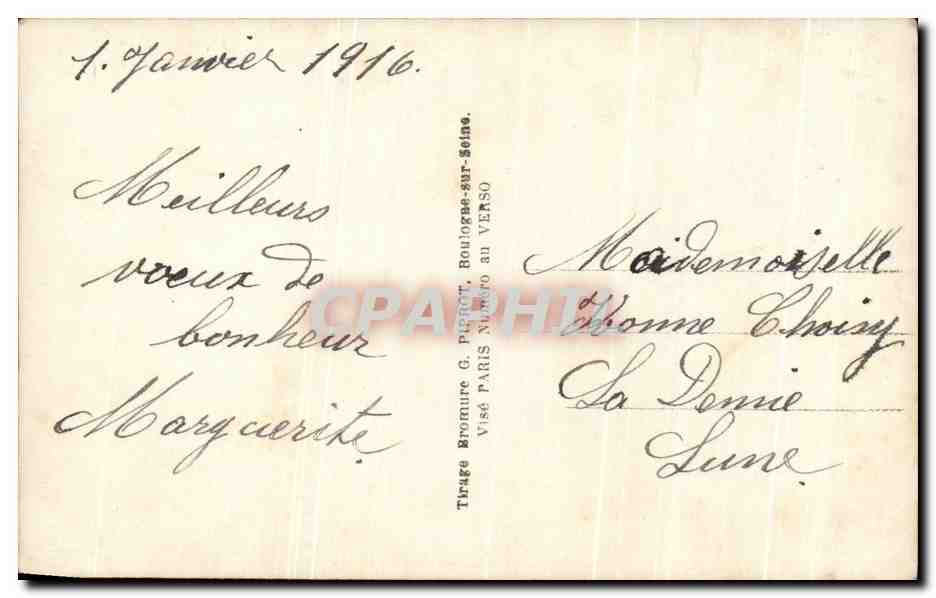 1. Janvier 1916.
Meilleurs
voeux de
bonheur
Marguerite.
Tirage Bromure G. PIPROT, Boulogne-sur-Seine.
Visé PARIS Numéro au VERSO
CPAPHIL
Mademoiselle
Yvonne Choisy
La Demie
Lune.